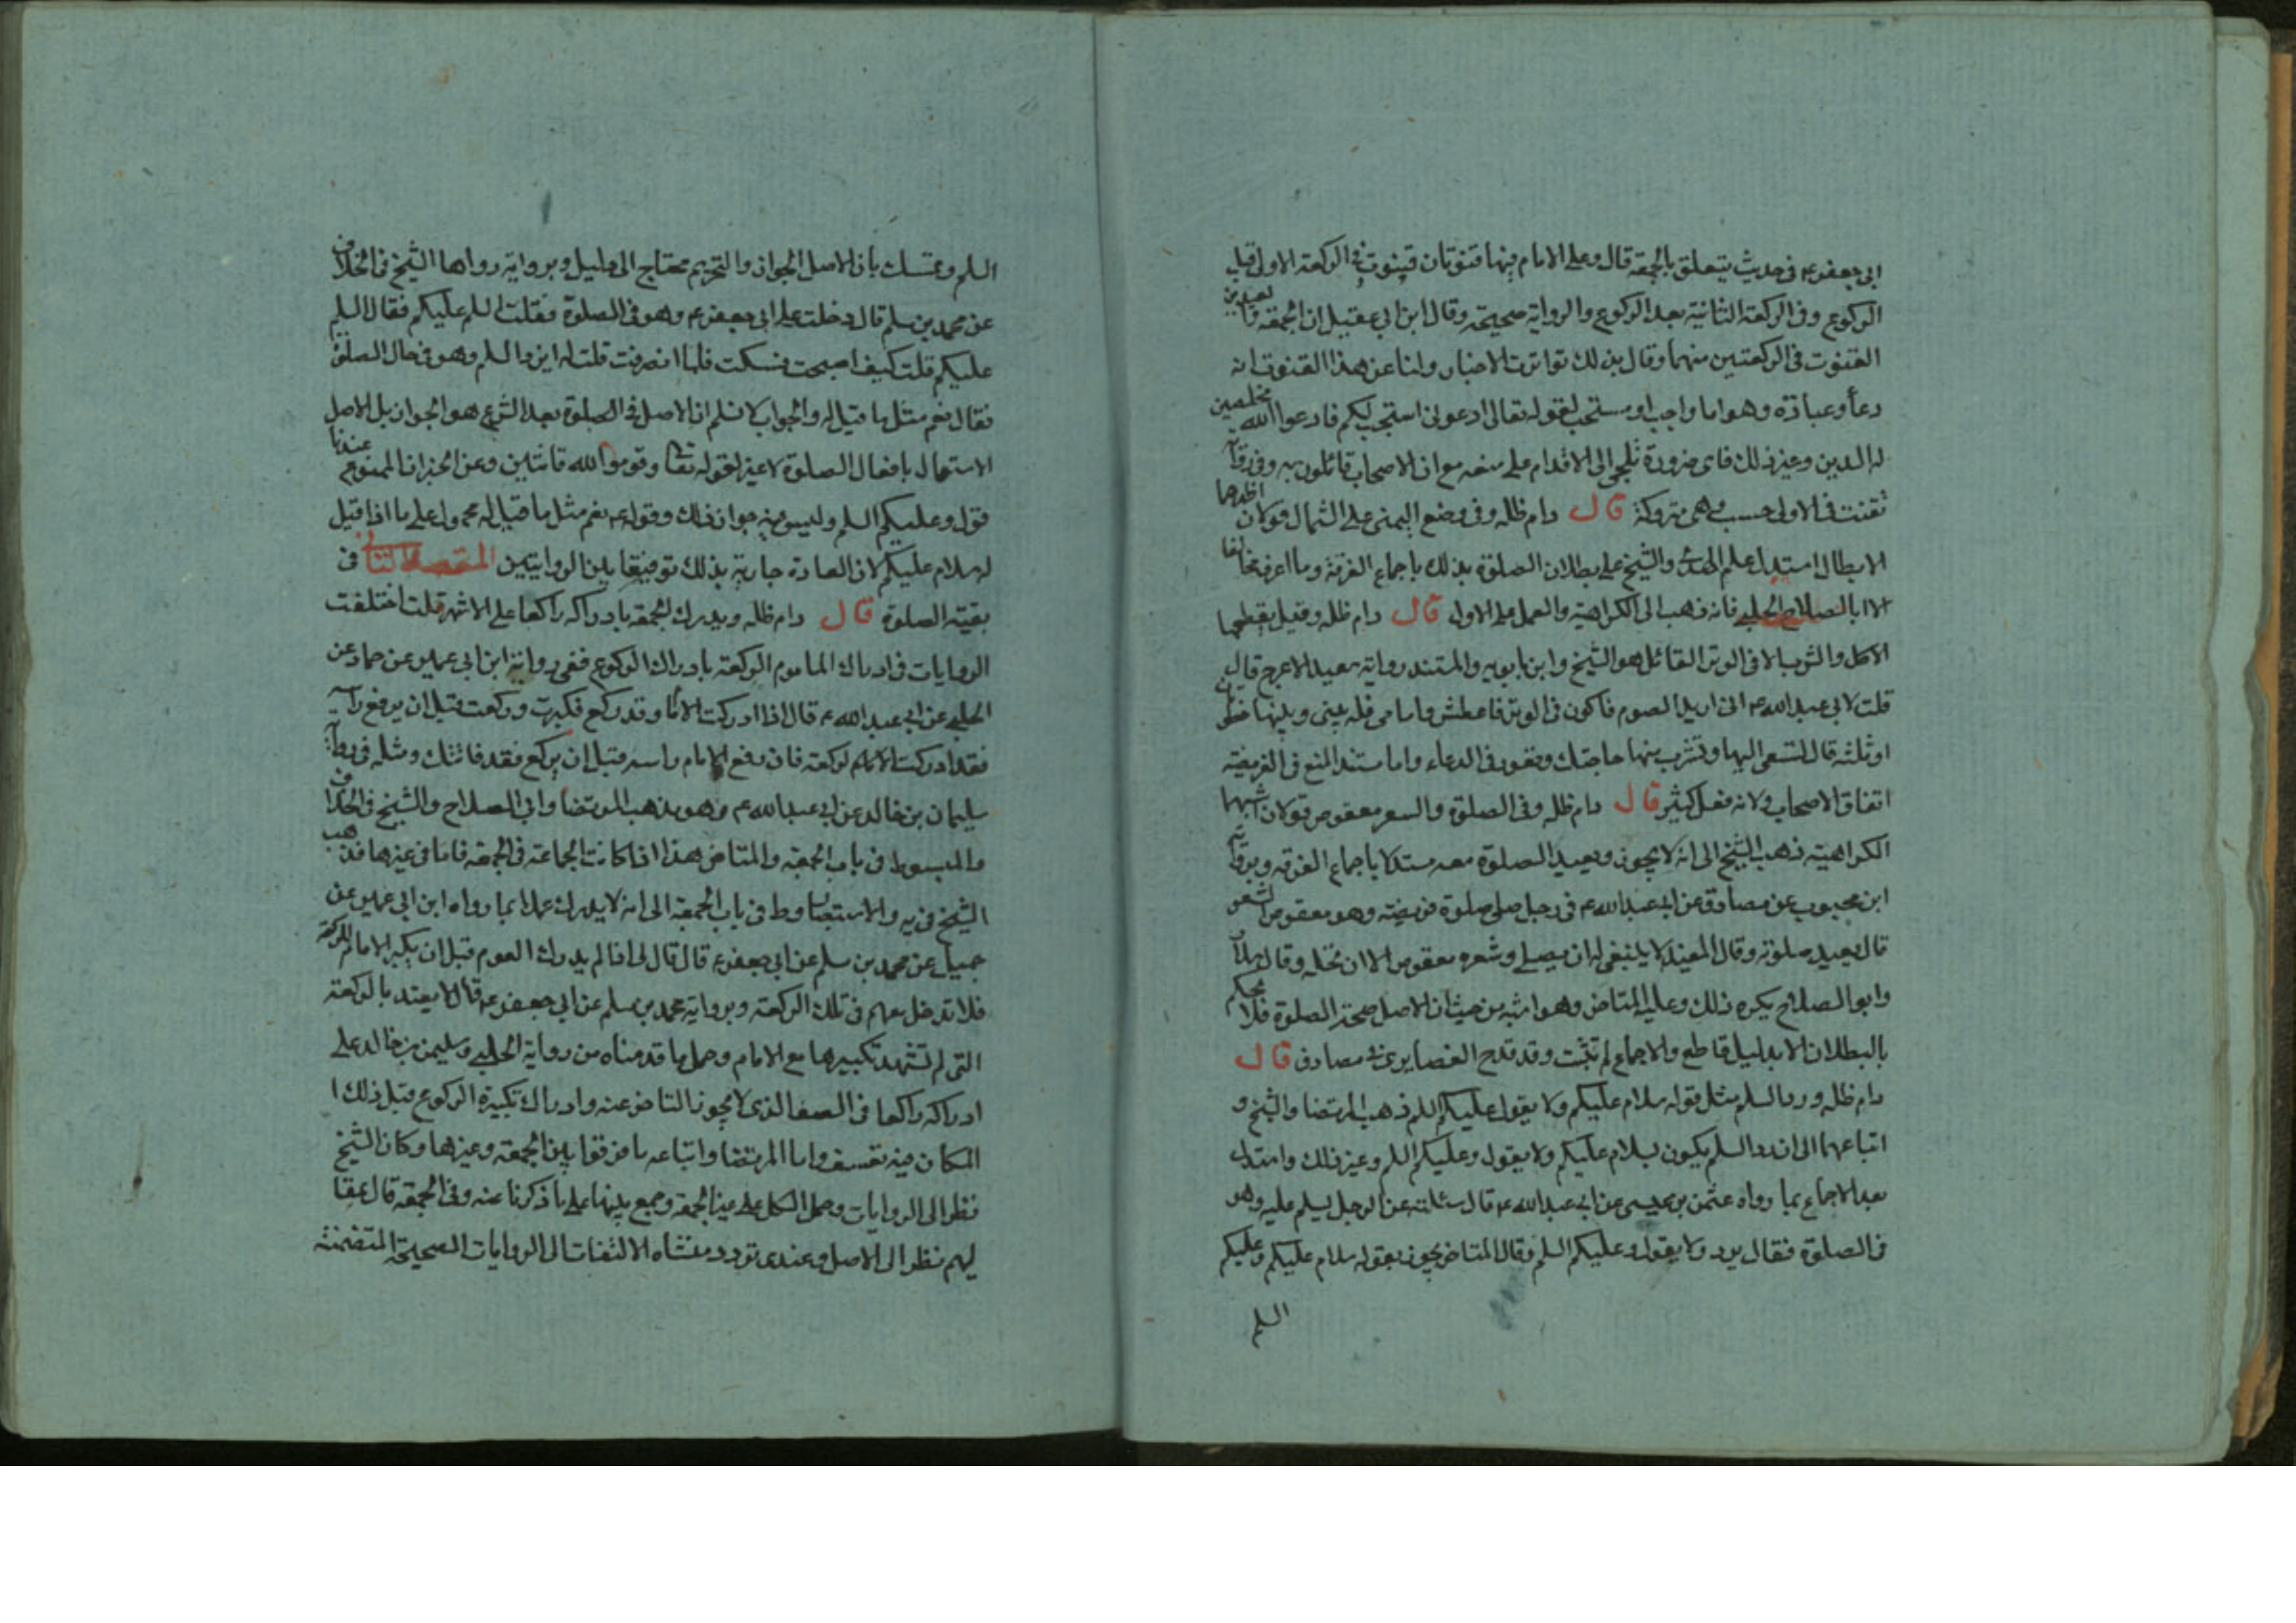 ابى جعفر ع فى حديث يتعلق بالجمعة قال وعلى الامام فيها قنوتان قنوت فى الركعة الاولى قبل
الركوع وفى الركعة الثانية بعد الركوع والرواية صحيحة وقال ابن ابى عقيل ان الجمعة والعيدين
القنوت فى الركعتين منهما وقال بذلك تواترت الاخبار ولنا عن هذا القنوت انه
دعاء وعبادة وهو اما واجب او مستحب لقوله تعالى ادعونى استجب لكم فادعوا الله مخلصين
له الدين وغير ذلك فاى ضرورة تلجئ الى الاقدام على منعه مع ان الاصحاب قائلون به وفى رواية
تقنت فى الاولى حسب وهى متروكة قال دام ظله وفى وضع اليمنى على الشمال قولان اظهرهما
الابطال استدل علم الهدى والشيخ على بطلان الصلوة بذلك باجماع الفرقة وما اعرف مخالفا
الا ابا الصلاح الحلبى فانه ذهب الى الكراهية والعمل على الاول قال دام ظله وقيل يقطعها
الاكل والشرب الا فى الوتر القائل هو الشيخ وابن بابويه والمستند رواية سعيد الاعرج قال
قلت لابى عبد الله ع انى اريد الصوم فاكون فى الوتر فاعطش وامامى قلة بينى وبينها خطوتان
او ثلثة قال تسعى اليها وتشرب منها حاجتك وتعود فى الدعاء واما مستند المنع فى الفريضة
اتفاق الاصحاب ولانه فعل كثير قال دام ظله وفى الصلوة والشعر معقوص قولان اشبههما
الكراهية ذهب الشيخ الى انه لا يجوز ويعيد الصلوة معه مستدلا باجماع الفرقة وبرواية
ابن محبوب عن مصادف عن ابى عبد الله ع فى رجل صلى صلوة فريضة وهو معقوص الشعر
قال يعيد صلوته وقال المفيد لا ينبغى له ان يصلى وشعره معقوص الا ان يحله وقال سلار
وابو الصلاح يكره ذلك وعليه المتاخر وهو اشبه من حيث ان الاصل صحة الصلوة فلا يحكم
بالبطلان الا بدليل قاطع والاجماع لم تثبت وقد قدح الغضايرى فى مصادف قال
دام ظله ورد السلم مثل قوله سلام عليكم ولا يقول عليكم السلم ذهب المرتضا والشيخ و
اتباعهما الى ان رد السلم يكون بسلام عليكم ولا يقول وعليكم السلم وغير ذلك واستدل
بعد الاجماع بما رواه عثمن بن عيسى عن ابى عبد الله ع قال سئلته عن الرجل يسلم عليه وهو
فى الصلوة فقال يرد ولا يقول وعليكم السلم وقال المتاخر يجوز بقوله سلام عليكم وعليكم
السلم
السلم وتمسك بان الاصل الجواز والتحريم محتاج الى دليل وبرواية رواها الشيخ فى الخلاف
عن محمد بن مسلم قال دخلت على ابى جعفر ع وهو فى الصلوة فقلت السلم عليكم فقال السلم
عليكم قلت كيف اصبحت فسكت فلما انصرفت قلت له ايرد السلم وهو فى حال الصلوة
فقال نعم مثل ما قيل له والجواب لا نسلم ان الاصل فى الصلوة بعد الشرع هو الجواز بل الاصل
الاشتغال بافعال الصلوة لا غير لقوله تعا وقوموا لله قانتين وعن الخبر ان الممنوع عندنا
قول وعليكم السلم وليس فيه جواز ذلك وقوله ع نعم مثل ما قيل له محمول على ما اذا قيل
له سلام عليكم لان العادة جارية بذلك توفيقا بين الروايتين المقصد الثالث فى
بقية الصلوة قال دام ظله ويدرك الجمعة بادراكه راكعا على الاشهر قلت اختلفت
الروايات فى ادراك الماموم الركعة بادراك الركوع ففى رواية ابن ابى عمير عن حماد عن
الحلبى عن ابى عبد الله ع قال اذا ادركت الامام وقد ركع فكبرت وركعت قبل ان يرفع راسه
فقد ادركت الركعة فان رفع الامام راسه قبل ان يركع فقد فاتتك ومثله فى رواية
سليمان بن خالد عن ابى عبد الله ع وهو مذهب المرتضا وابى الصلاح والشيخ فى الخلاف
والمبسوط فى باب الجمعة والمتاخر هذا اذا كانت الجماعة فى الجمعة فاما فى غيرها فذهب
الشيخ فى يه والاستبصار وط فى باب الجمعة الى انه لا يدرك عملا بما رواه ابن ابى عمير عن
جميل عن محمد بن مسلم عن ابى جعفر ع قال قال لى اذا لم يدرك القوم قبل ان يكبر الامام للركعة
فلا تدخل معهم فى تلك الركعة وبرواية محمد بن مسلم عن ابى جعفر ع قال لا يعتد بالركعة
التى لم تشهد تكبيرها مع الامام وحمل ما قدمناه من رواية الحلبى وسليمن بن خالد على
ادراكه راكعا فى الصف الذى لا يجوز التاخر عنه وادراك تكبيرة الركوع قبل ذلك ا
المكان فيه تعسف واما المرتضا واتباعه ما فرقوا بين الجمعة وغيرها وكان الشيخ
نظر الى الروايات وحمل الكل على غير الجمعة وجمع بينها على ما ذكرنا عنه وفى الجمعة قال بمقا
لهم نظر الى الاصل وعندى تردد منشاه الالتفات الى الروايات الصحيحة المتضمنة